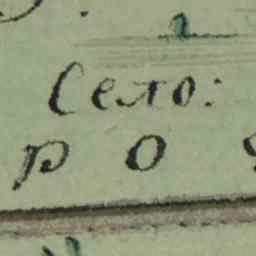 Село:
р о